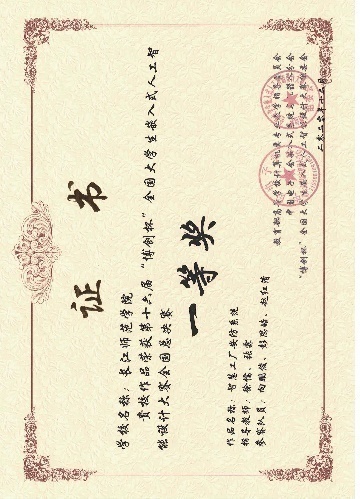 证书
学校名称：长江师范学院
贵校作品荣获第十六届“博创杯”全国大学生嵌入式人工智
能设计大赛全国总决赛
一等奖
作品名称：智慧工厂安防系统
指导教师：徐儒、
参赛队员：向鹏俊、彭思皓、赵红清
教育部高等学校计算机类专业教学指导委员会
中国电子学会嵌入式系统
“博创杯”全国大学生嵌入式人工智能设计大赛组委会
二〇二〇年十二月